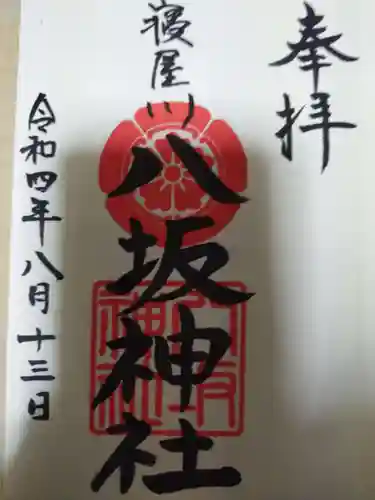 奉拝
寝屋川
八坂神社
令和四年八月十三日
八坂神社